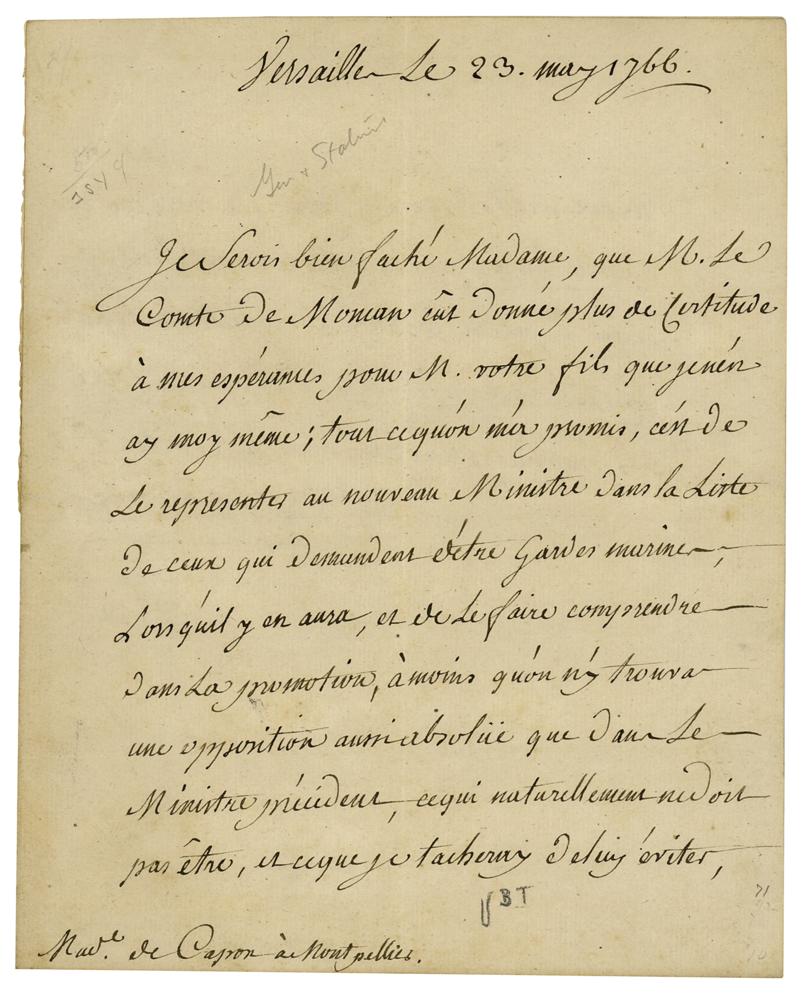 Versailles Le 23. may 1766.
Je Serois bien faché Madame, que M. Le
Comte De Moncan eût Donné plus de Certitude
à mes espérances pour M. votre fils que je n'én
ay moy même; tout ce qu'ón m'a promis, c'ést De
Le representer au nouveau Ministre Dans la Liste
De ceux qui Demandent d'étre Gardes marine,
Lors qu'il y en aura, et de Le faire comprendre
Dans La promotion, à moins qu'ón n'y trouva
une opposition aussi absolüe que Dans Le
Ministre précédent, ce qui naturellement ne Doit
pas être, et ce que je tacheray De luy éviter,
BT
71
Mad.e de Capon à Montpellier.